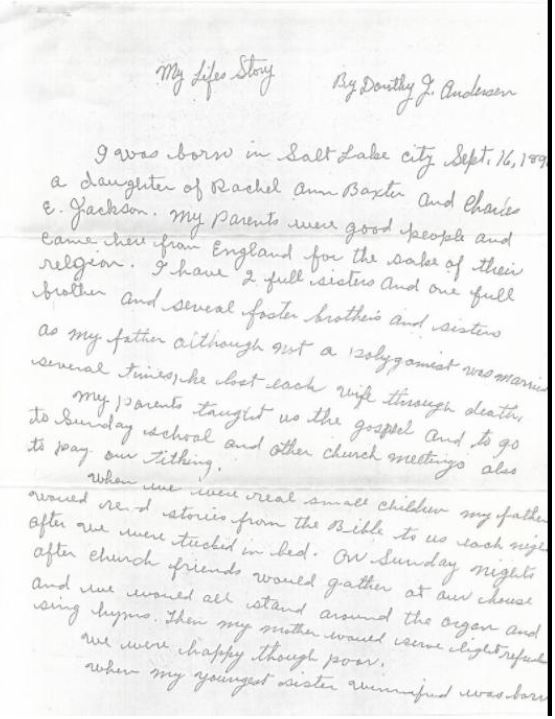 My Lifes Story By Dorothy J. Andersen
I was born in Salt Lake city Sept. 16, 189
a daughter of Rachel Ann Baxter and Charles
E. Jackson. My Parents were good people and
came here from England for the sake of their
relgion. I have 2 full sisters and one full
brother and seveal foster brothers and sisters
as my father although not a polygamist was married
several times, he lost each wife through death,
My parents taught us the gospel and to go
to Sunday school and other church meetings also
to pay our Tithing.
When we were real small children my father
would re d stories from the Bible to us each nigh
after we were tucked in bed. On Sunday nights
after church friends would gather at our house
and we would all stand around the organ and
sing hyms. Then my mother would serve light refresh
We were happy though poor.
When my youngest sister Winnifred was born